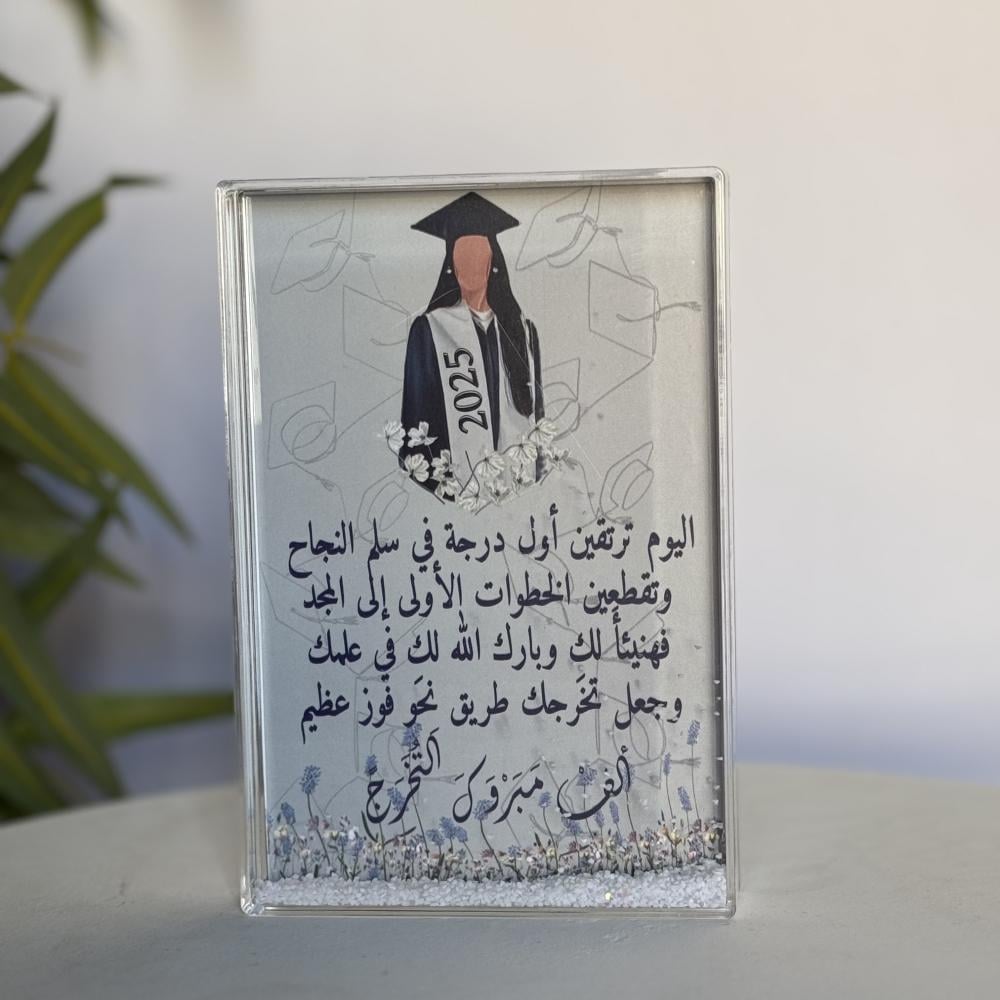 2025
اليوم ترتقين أول درجة في سلم النجاح
وتقطعين الخطوات الأولى إلى المجد
فهنيئاً لكِ وبارك الله لك في علمك
وجعل تخَرجك طريق نحَو فوز عظيم
ألفْ مَبَرْوَكَ اَلتُخَرَجَّ